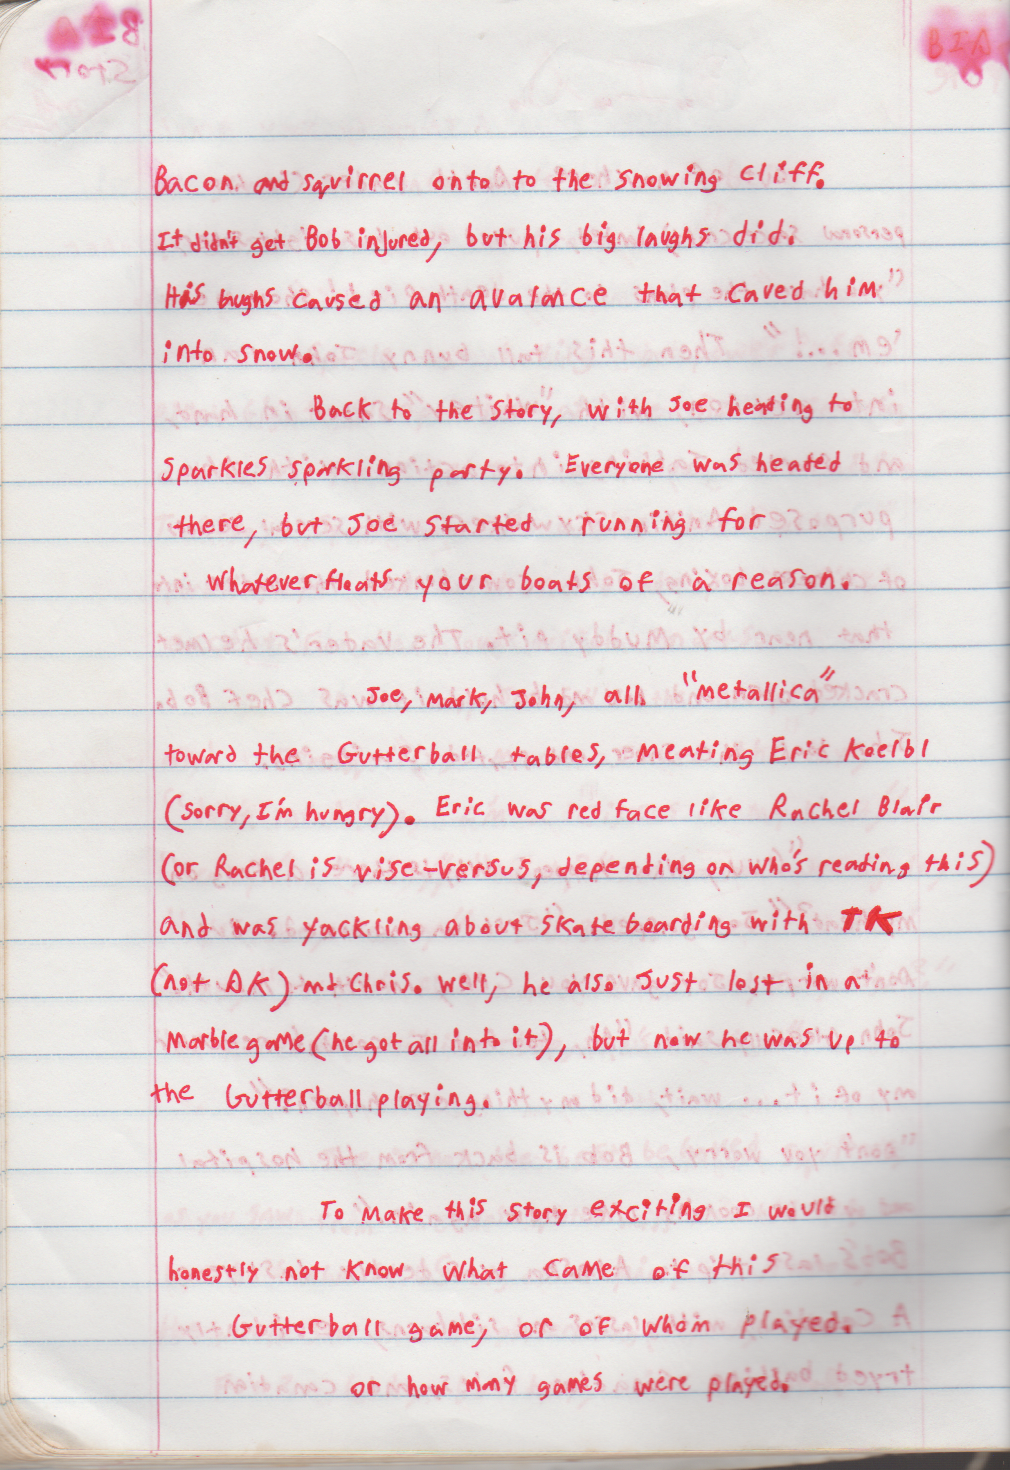 BIA
Bacon and squirrel onto to the snowing cliff.
It didn't get Bob injured, but his big laughs did.
His laughs caused an avalance that caved him
into snow.
Back to the story, with Joe heating to
sparkles sparkling party. Everyone was heated
there, but Joe started running for
whatever floats your boats of a reason.
Joe, Mark, John, all "metallica"
toward the Gutterball tables, meating Eric Koelbl
(sorry, I'm hungry). Eric was red face like Rachel Blair
(or Rachel is vise-versus, depending on who's reading this)
and was yackling about skateboarding with TK
(not AK) and Chris. Well, he also just lost in a
Marble game (he got all into it), but now he was up to
the Gutterball playing.
To make this story exciting I would
honestly not know what came of this
Gutterball game, or of whom played.
or how many games were played.